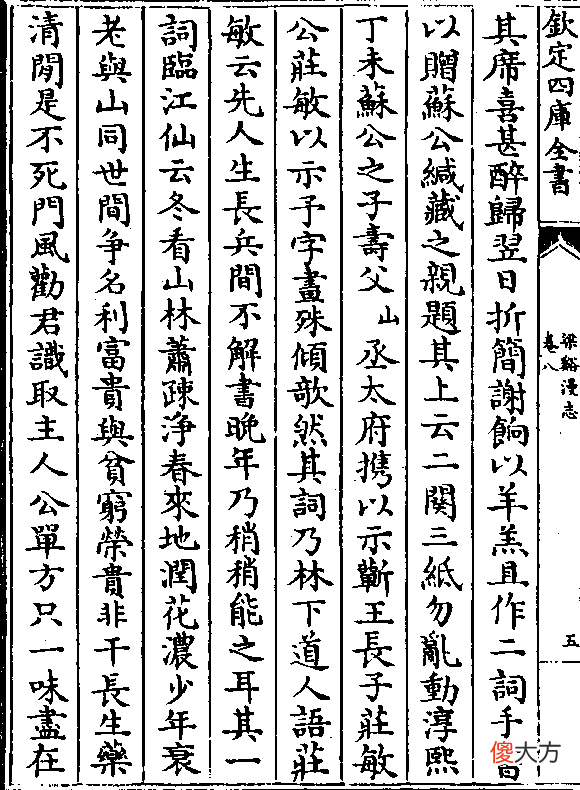 欽定四庫全書
梁谿漫志
卷八
五
其席喜甚醉歸翌日折簡謝餉以羊羔且作二詞手書
以贈蘇公緘藏之親題其上云二闋三紙勿亂動淳熙
丁未蘇公之子壽父山丞太府攜以示蘄王長子莊敏
公莊敏以示予字畫殊傾欹然其詞乃林下道人語莊
敏云先人生長兵間不解書晚年乃稍稍能之耳其一
詞臨江仙云冬看山林蕭疎淨春來地潤花濃少年衰
老與山同世間争名利富貴與貧窮榮貴非干長生藥
清閒是不死門風勸君識取主人公單方只一味盡在
傻大方